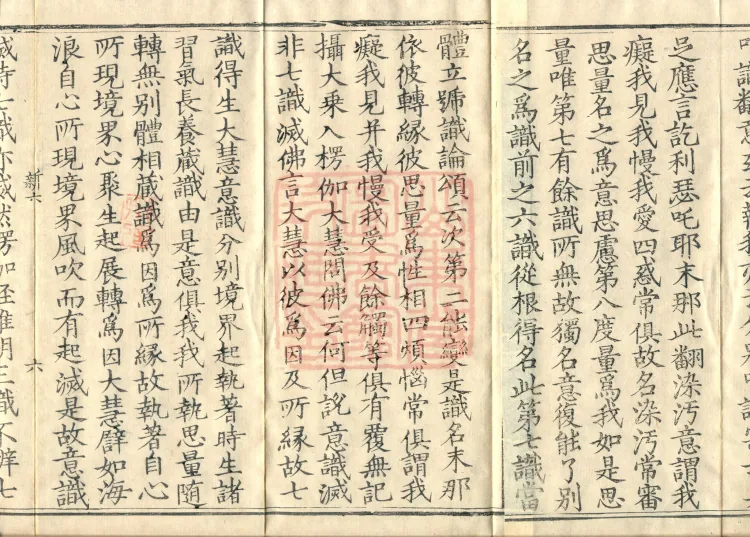 足應言訖利瑟吒耶末那此翻染污意謂我
癡我見我慢我愛四惑常俱故名染污常審
思量名之爲意思慮第八度量爲我如是思
量唯第七有餘識所無故獨名意復能了別
名之爲識前之六識從根得名此第七識當
體立號識論頌云次第二能變是識名末那
依彼轉緣彼思量爲性相四煩惱常俱謂我
癡我見并我慢我受及餘觸等俱有覆無記
攝大乗入楞伽大慧問佛云何但說意識滅
非七識滅佛言大慧以彼爲因及所緣故七
識得生大慧意識分別境界起執著時生諸
習氣長養藏識由是意俱我我所執思量隨
轉無別體相藏識爲因爲所緣故執著自心
所現境界心聚生起展轉爲因大慧譬如海
浪自心所現境界風吹而有起滅是故意識
新六 六
滅時七識亦滅然楞伽經唯明三識不辨七